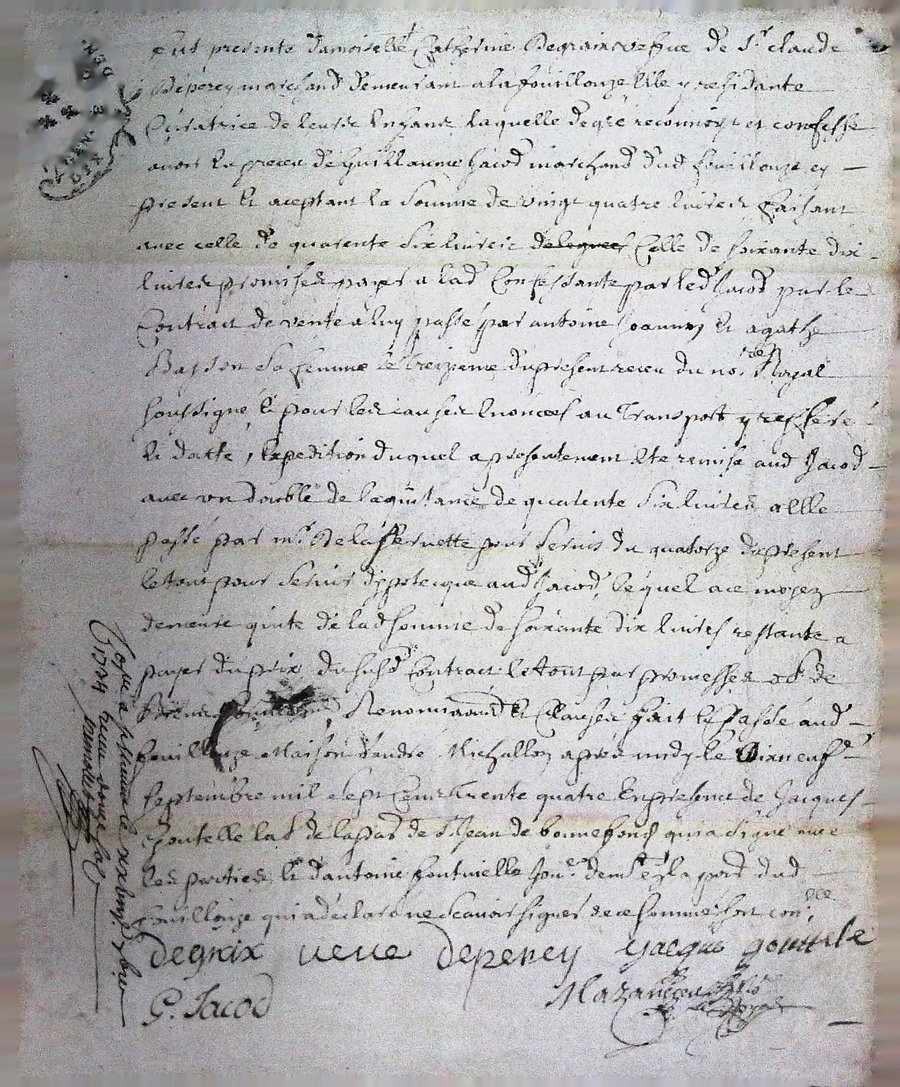 fut presente damoiselle Catherine Degraix vefue de Sr. claude
Deperey marchand demeurant a la fouillouze Elle y residante
Curatrice de leurs Enfans laquelle de gré reconnoist et confesse
avoir Eu et receu de Guillaume Jacod marchand dud fouillouze cy
present et aceptant la somme de vingt quatre livres faisant
avec celle de quarente six livres Celle de soixante dix
livres promises payer a lad Confessante par led Jacod par le
Contrait de vente a luy passé par antoine Joanny et agathe
Basson sa femme le treizieme du present receu du nore. Royal
soussigné et pour les causes Enoncées au Transport y refferé
et datté, Expedition duquel a presentement Eté remise aud Jacod
avec un double de la quittance de quarente six livres a Elle
passé par mr. De la pour servis du quatorze du present
le tout pour servir d'ypotecque aud Jacod, lequel a ce moyen
demeure quitte de lad somme de soixante dix livres restante a
payer du prix du susd Contrait le tout par promesses obn. de
biens Renonciaons Et Clauses fait et passé aud
fouillouze Maison d'andré Michallon aprés midy le dixneufe
septembre mil sept Cens trente quatre En presence de Jacques
Goutelle la de la par de St. Jean de bonnefonds qui a signé avec
les parties et d'antoine fontvielle demt En la par dud
fouillouze qui a déclaré ne scavoir signer de ce sommé
degraix veuve deperey Jacque goutelle
G. Jacod
Nore Royal
a st Etienne le
1734 receu douze sols